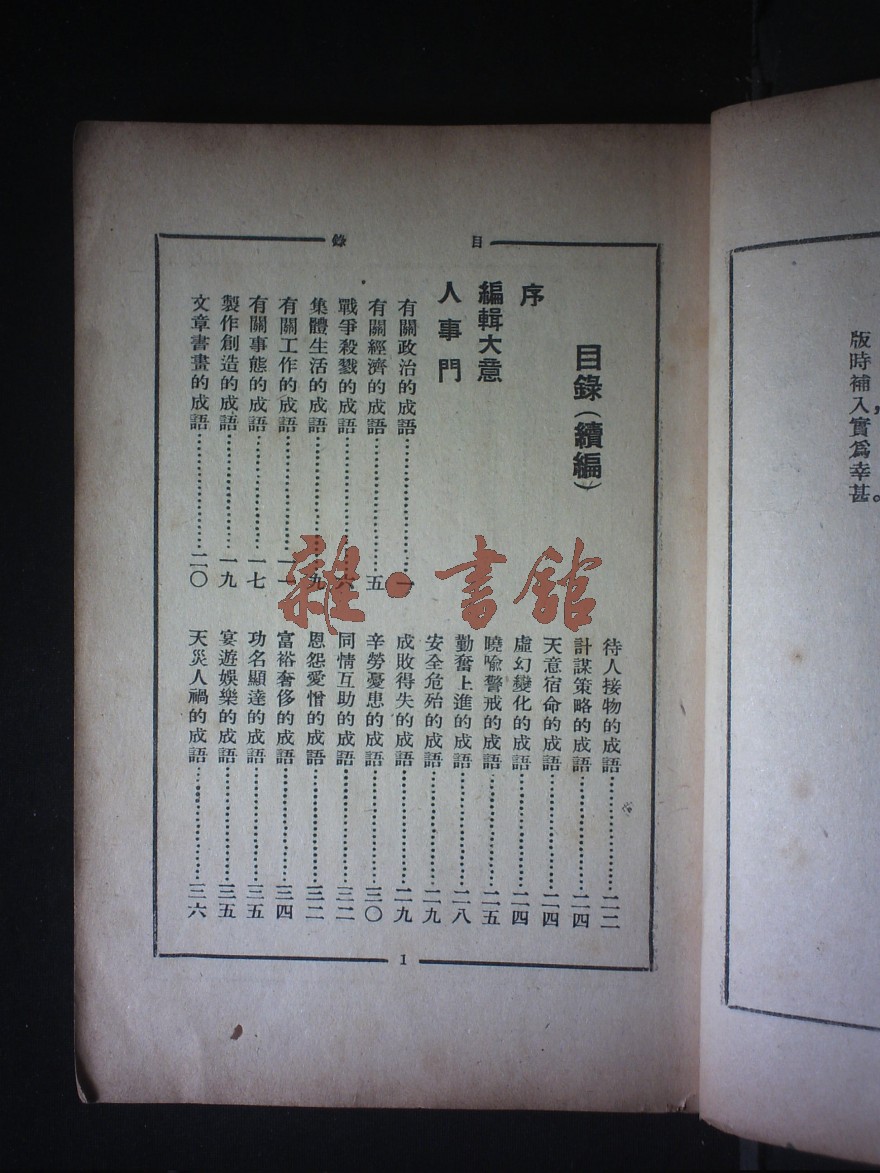 版時補入，實爲幸甚。
目錄
目錄（續編）
序
編輯大意
人事門
有關政治的成語…………一
有關經濟的成語…………五
戰爭殺戮的成語…………六
集體生活的成語…………九
有關工作的成語…………一一
有關事態的成語…………一七
製作創造的成語…………一九
文章書畫的成語…………二〇
待人接物的成語…………二二
計謀策略的成語…………二四
天意宿命的成語…………二四
虛幻變化的成語…………二四
曉喩警戒的成語…………二五
勤奮上進的成語…………二八
安全危殆的成語…………二九
成敗得失的成語…………二九
辛勞憂患的成語…………三〇
同情互助的成語…………三二
恩怨愛憎的成語…………三二
富裕奢侈的成語…………三四
功名顯達的成語…………三五
宴遊娛樂的成語…………三五
天災人禍的成語…………三六
1
雜·書館